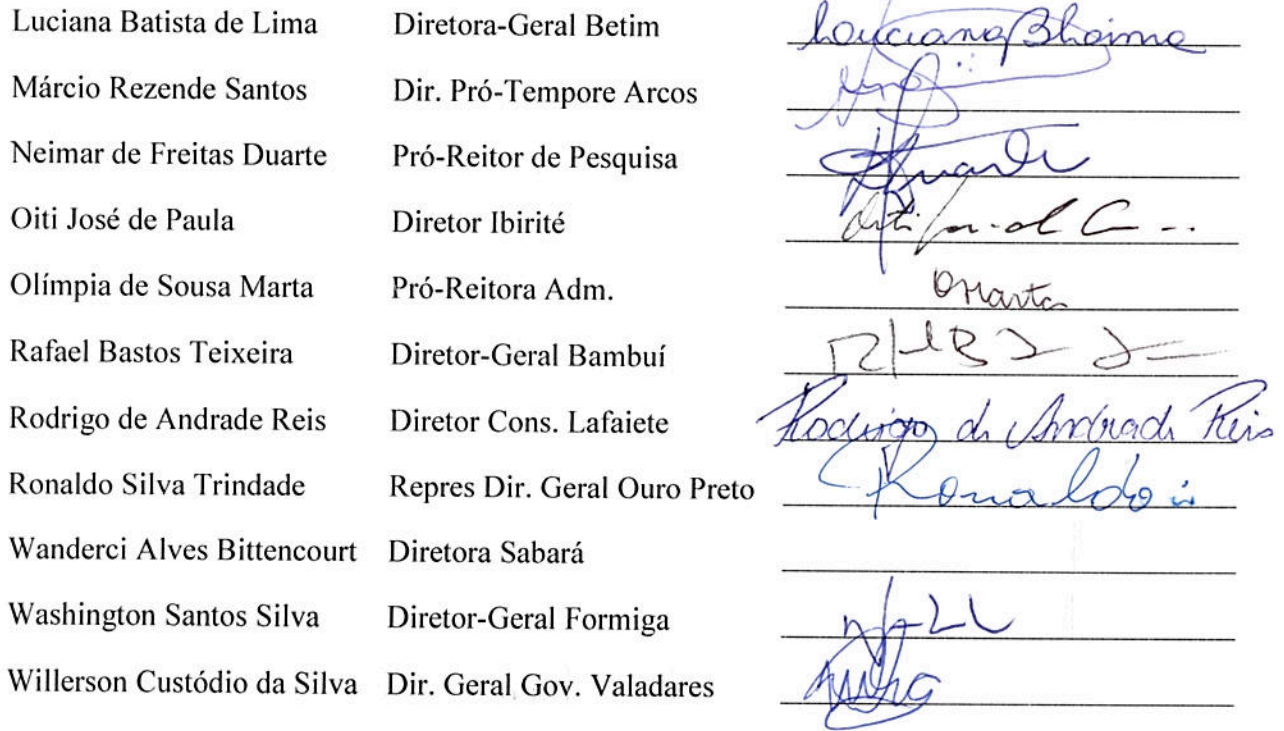 Luciana Batista de Lima Diretora-Geral Betim Luciana Blima
Márcio Rezende Santos Dir. Pró-Tempore Arcos
Neimar de Freitas Duarte Pró-Reitor de Pesquisa Duarte
Oiti José de Paula Diretor Ibirité Oiti
Olímpia de Sousa Marta Pró-Reitora Adm. OMarta
Rafael Bastos Teixeira Diretor-Geral Bambuí
Rodrigo de Andrade Reis Diretor Cons. Lafaiete Rodrigo de Andrade Reis
Ronaldo Silva Trindade Repres Dir. Geral Ouro Preto Ronaldo
Wanderci Alves Bittencourt Diretora Sabará
Washington Santos Silva Diretor-Geral Formiga
Willerson Custódio da Silva Dir. Geral Gov. Valadares